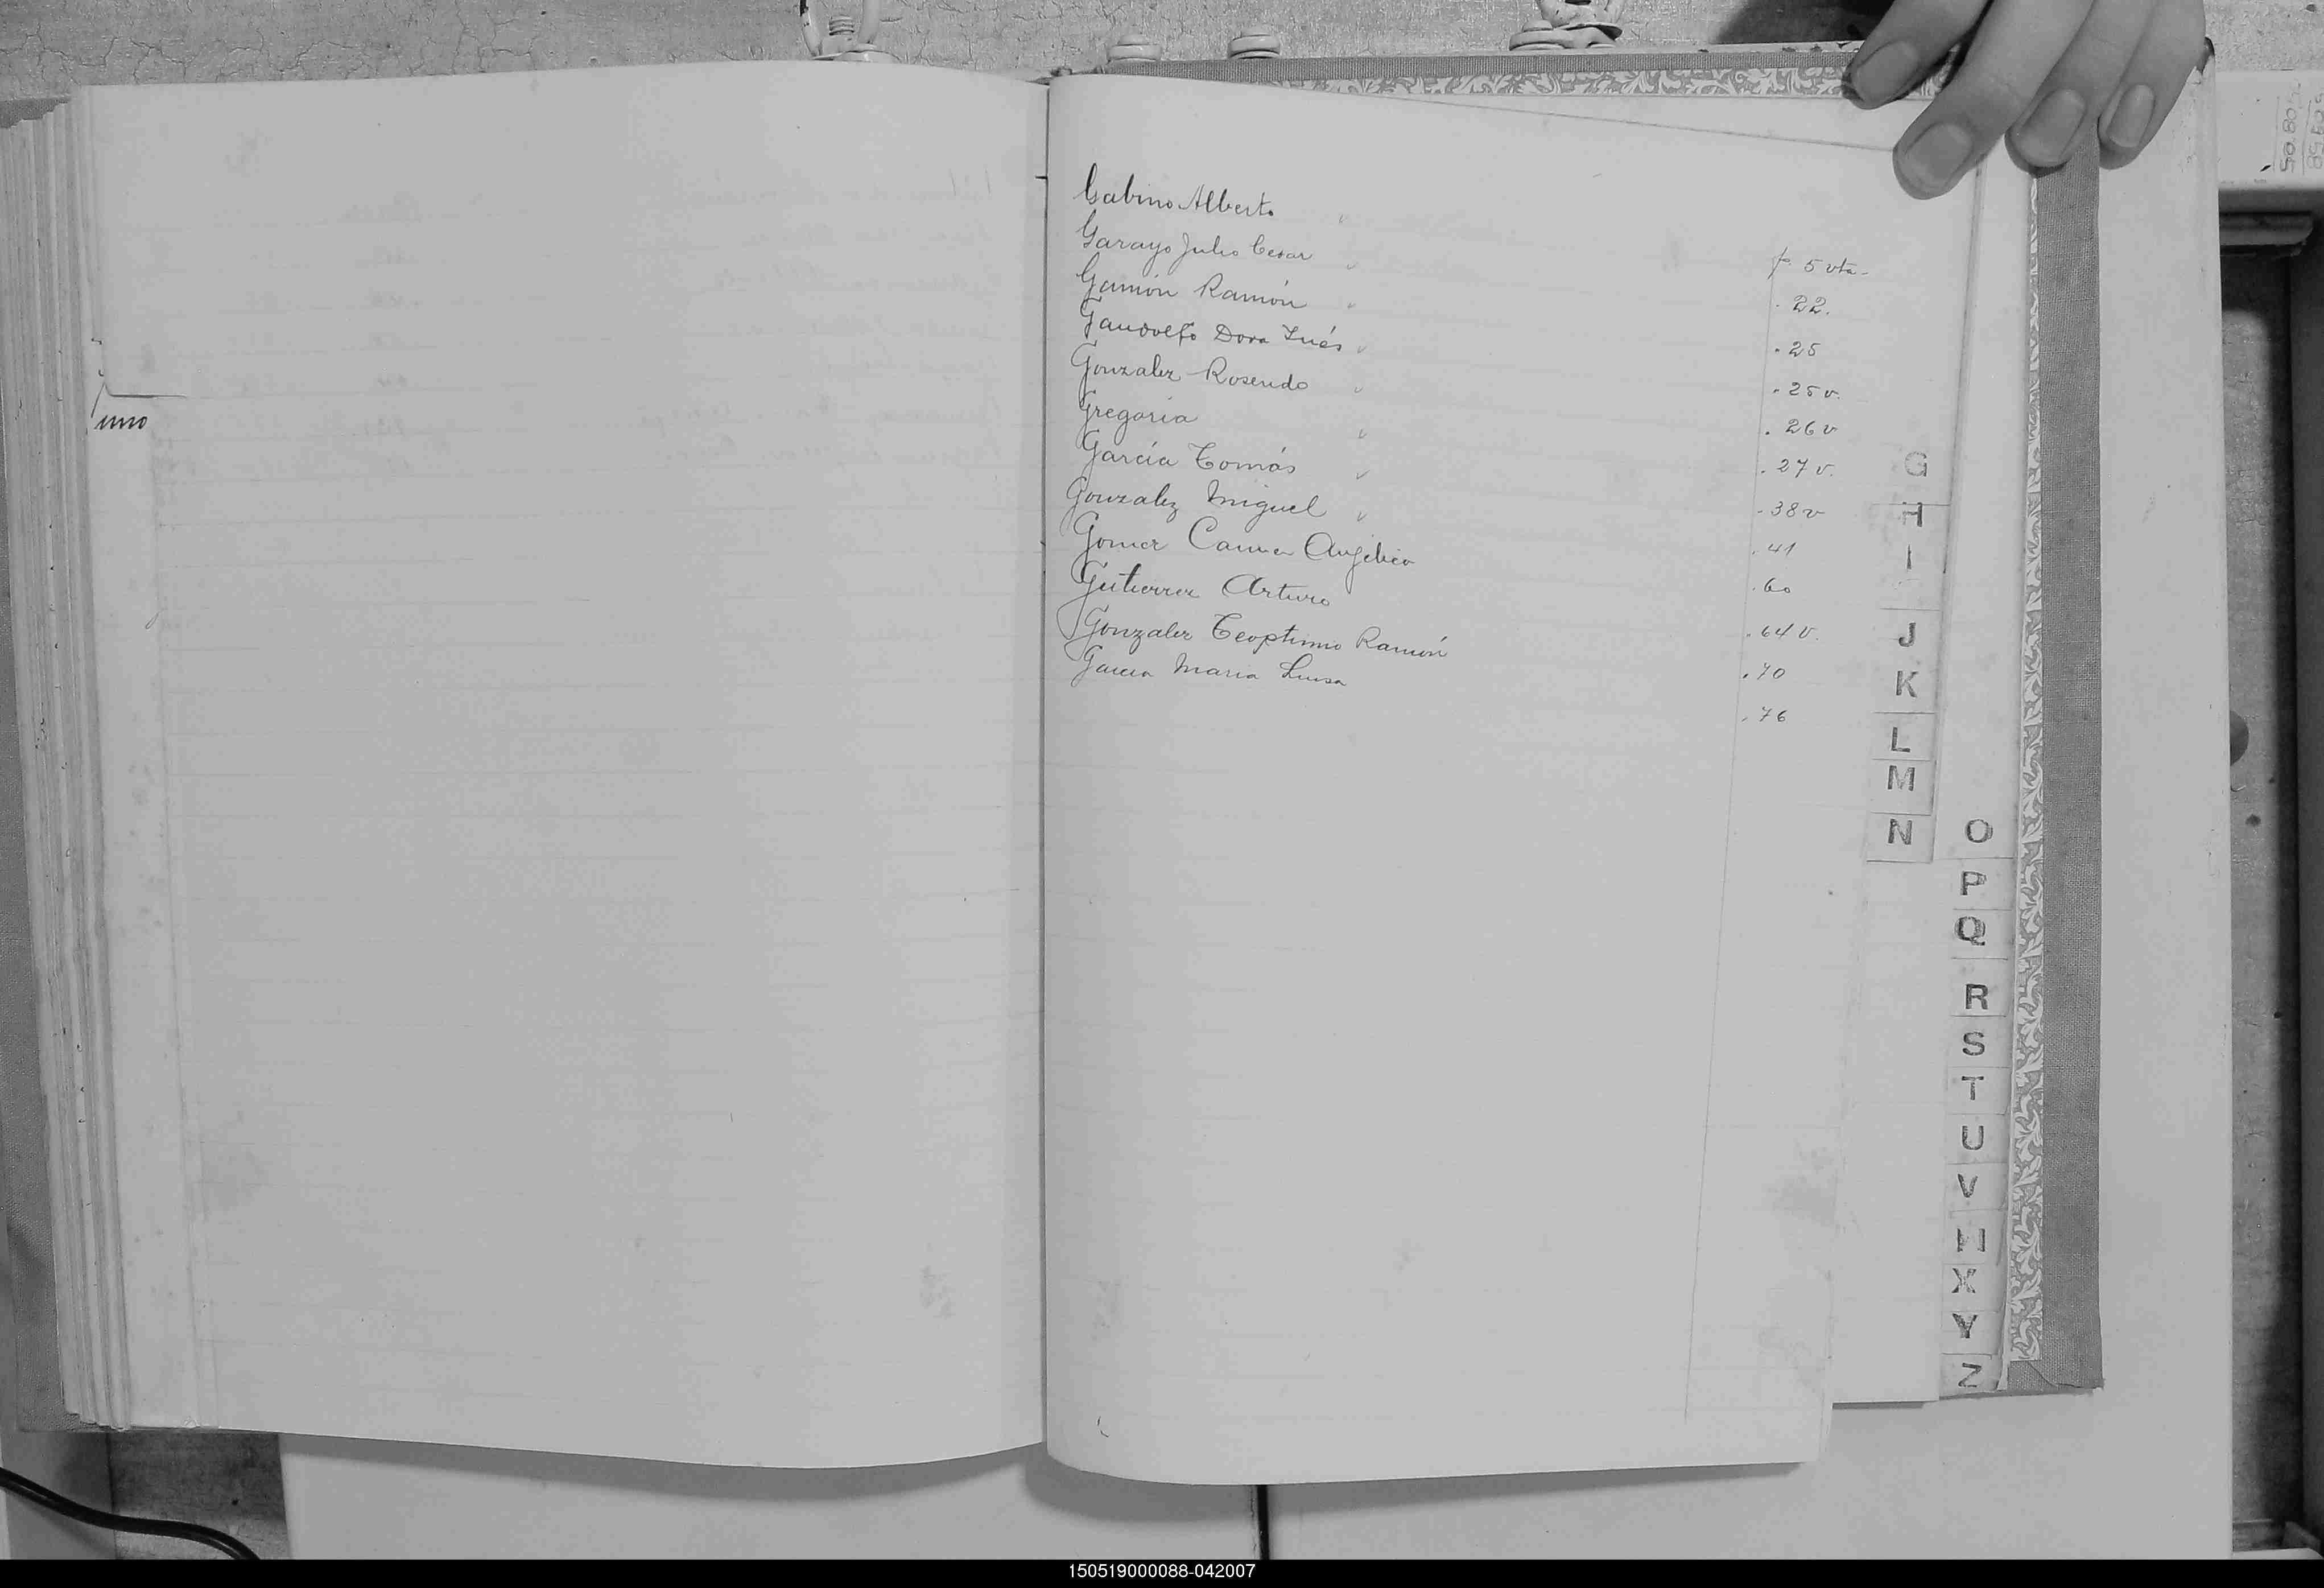 uno
Gabino Alberto f. 5 vta-
Garayo Julio Cesar . 22.
Gamón Ramón . 25
Gandolfo Dora Inés . 25 v.
Gonzalez Rosendo . 26 v
Gregoria . 27 v.
García Tomás . 38 v
Gonzalez Miguel . 41
Gomez Carmen Angélica . 60
Gutierrez Arturo . 64 v.
Gonzalez Teoptimo Ramón . 70
Garcia Maria Luisa . 76
G
H
I
J
K
L
M
N
O
P
Q
R
S
T
U
V
X
Y
Z
150519000088-042007